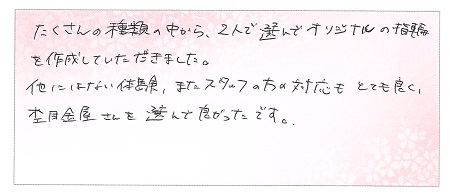 たくさんの種類の中から、2人で選んでオリジナルの指輪
を作成していただきました。
他にはない体験、またスタッフの方の対応もとても良く、
杢目金屋さんを選んで良かったです。